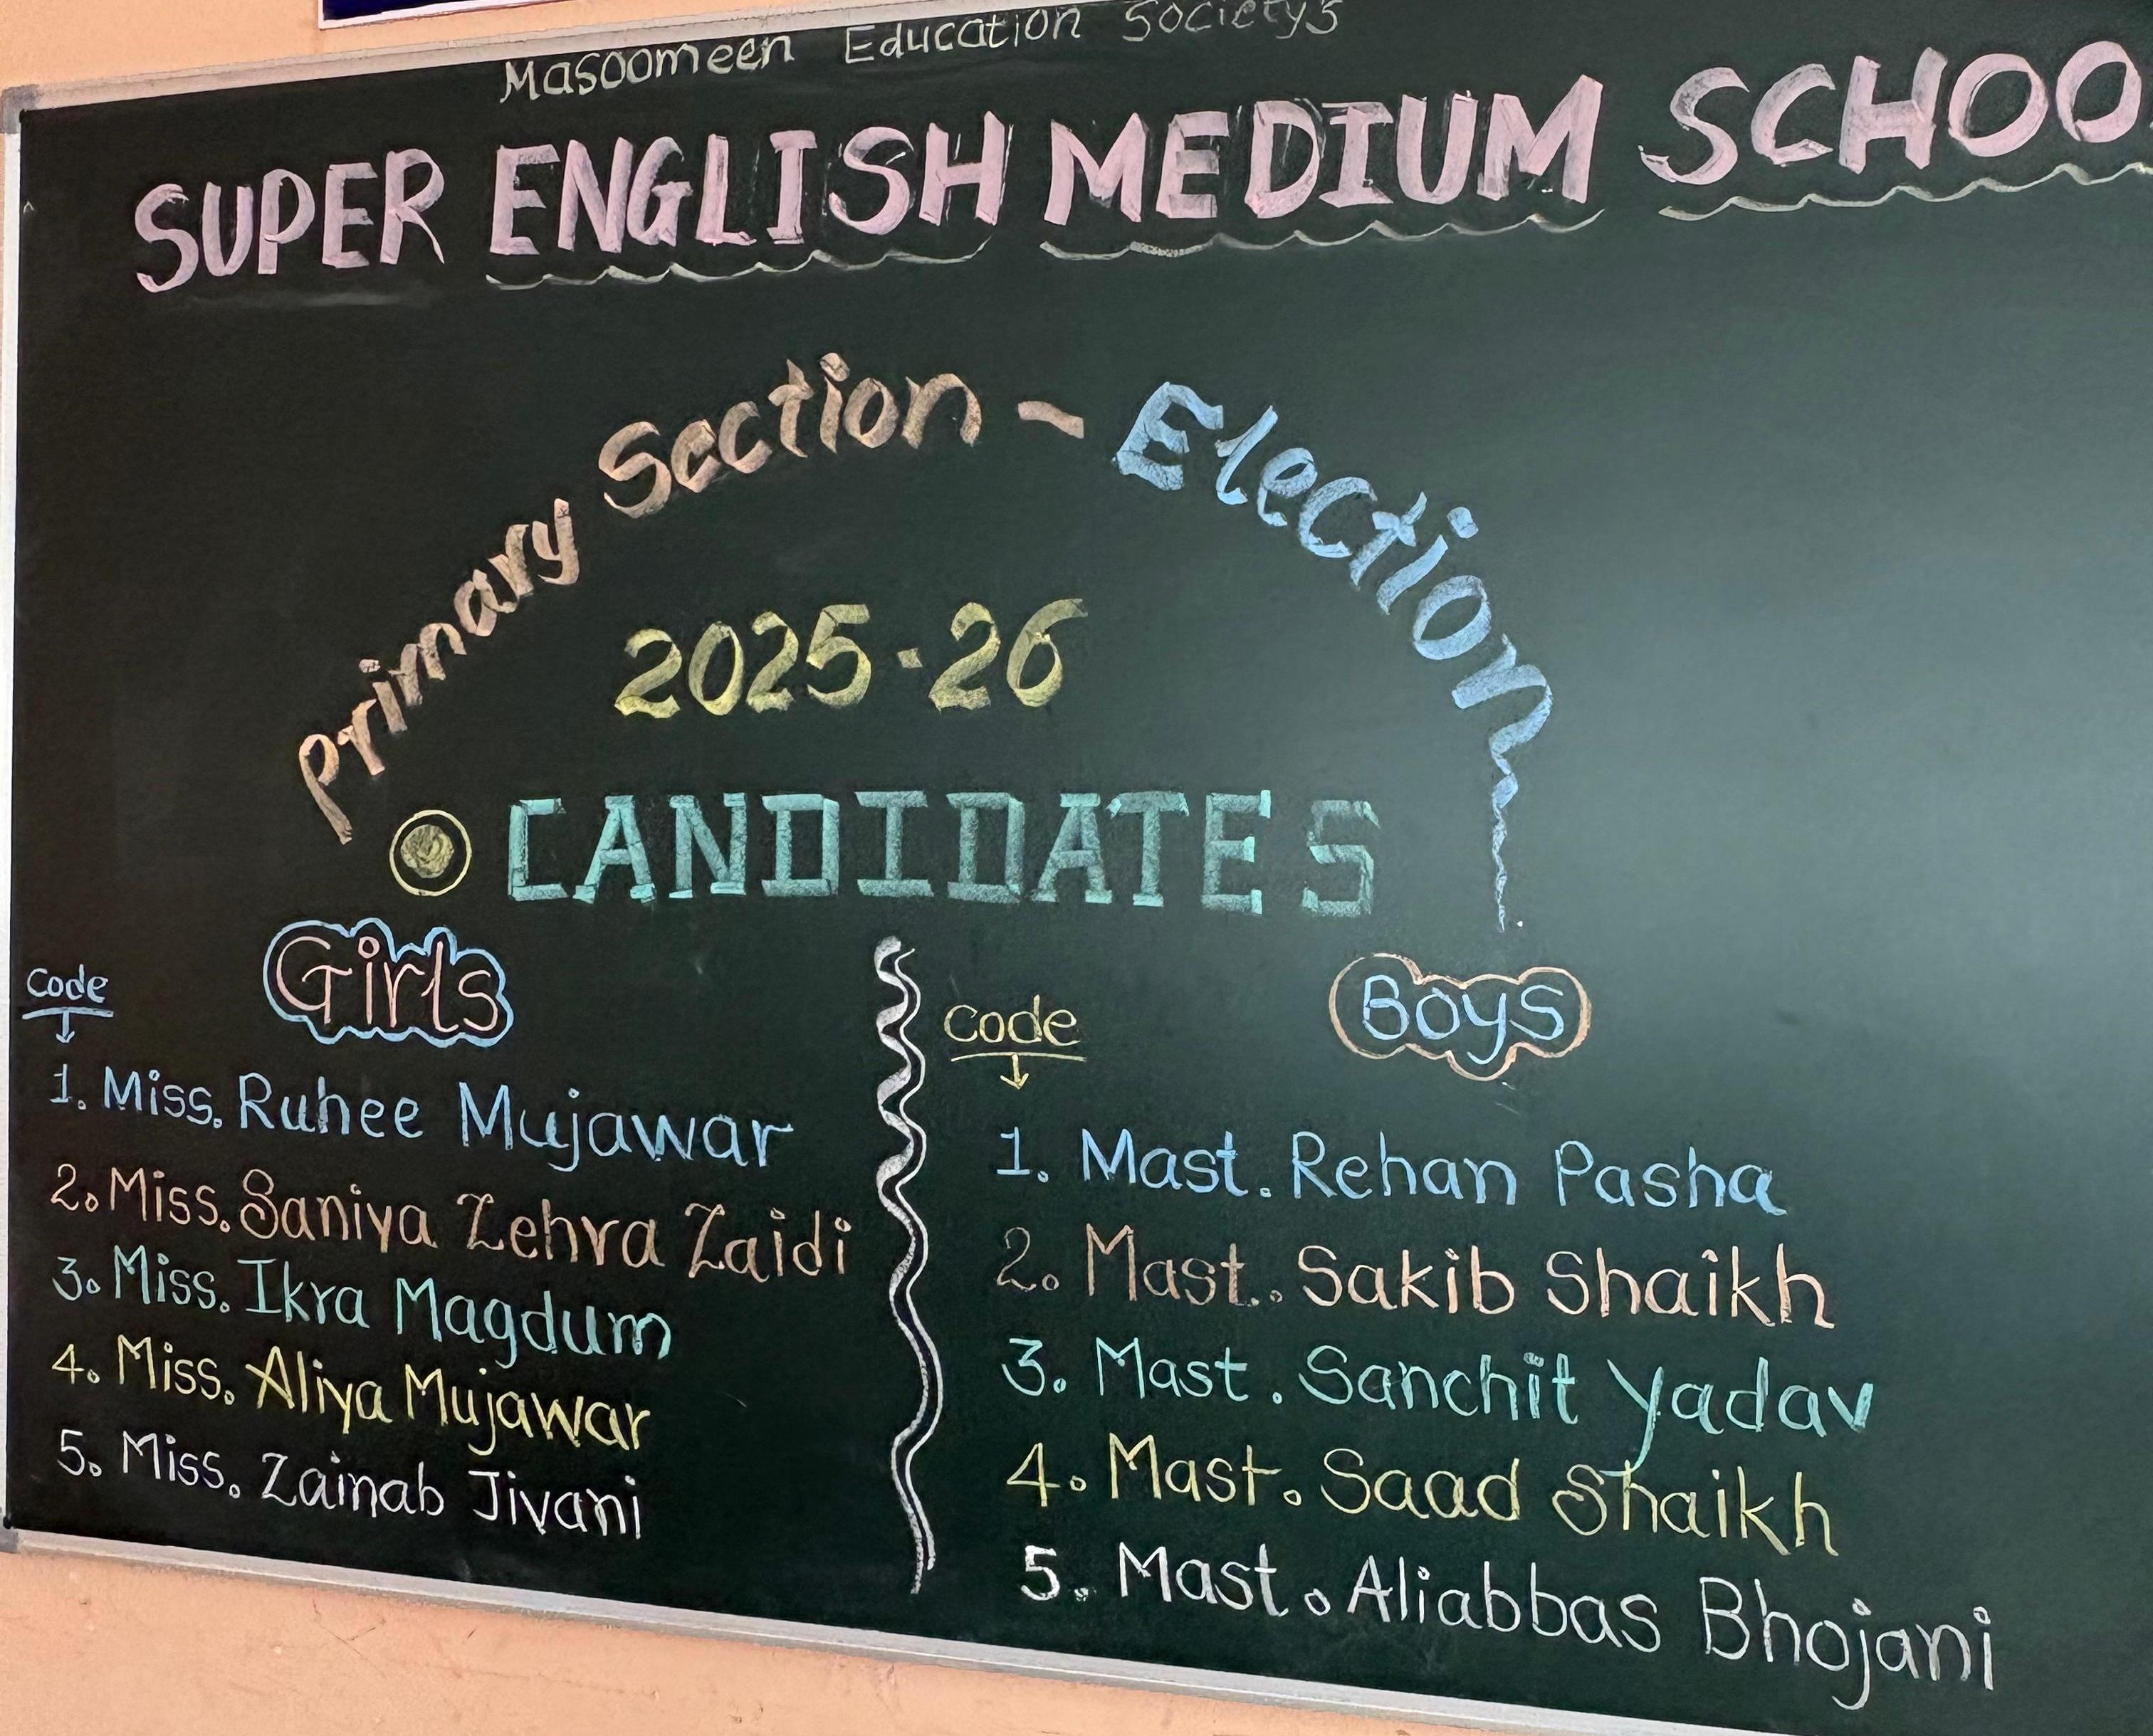 Masoomeen Education Society's
SUPER ENGLISH MEDIUM SCHOO
Primary Section - Election
2025-26
CANDIDATES
Girls
Code
1. Miss. Ruhee Mujawar
2. Miss. Saniya Zehra Zaidi
3. Miss. Ikra Magdum
4. Miss. Aliya Mujawar
5. Miss. Zainab Jivani
Boys
Code
1. Mast. Rehan Pasha
2. Mast. Sakib Shaikh
3. Mast. Sanchit Yadav
4. Mast. Saad Shaikh
5. Mast. Aliabbas Bhojani